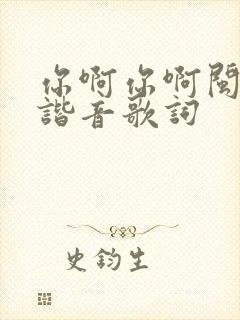 你啊你啊閩
諧音歌詞
史鈞生